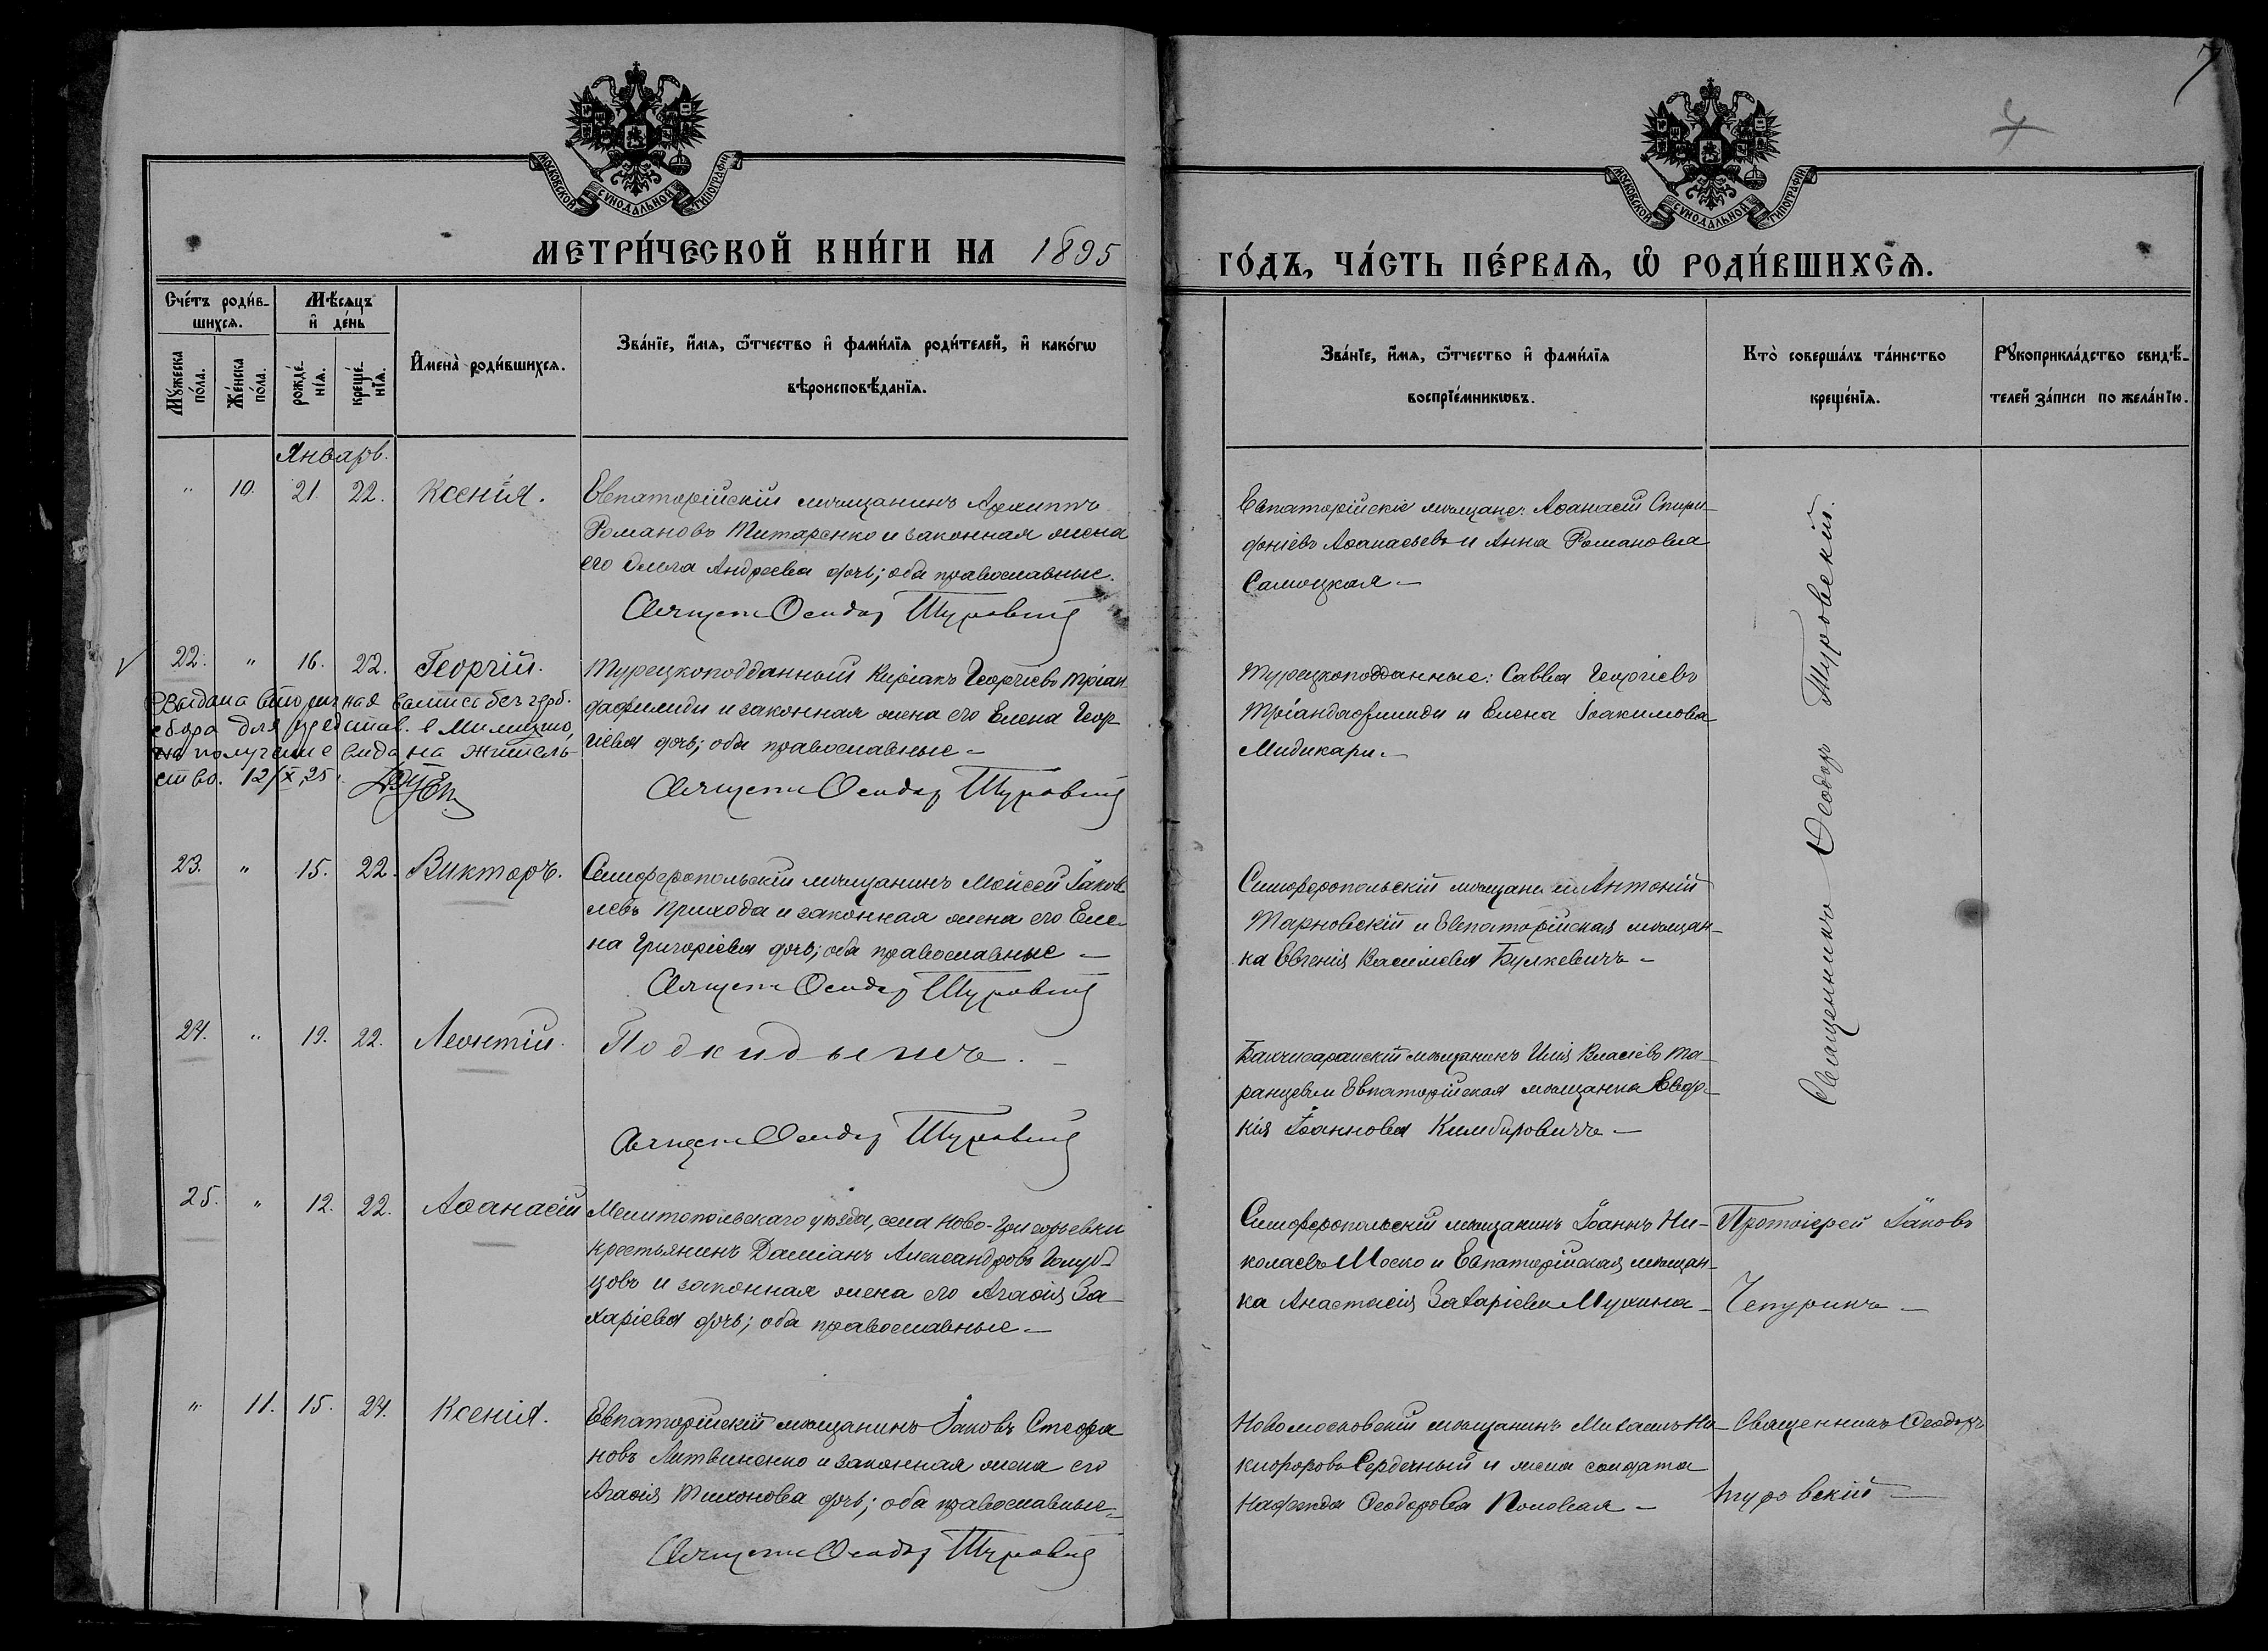 7
4
МОСКОВСКОЙ СѴНОДАЛЬНОЙ ТИПОГРАФІИ
МОСКОВСКОЙ СѴНОДАЛЬНОЙ ТИПОГРАФІИ
МЕТРИ́ЧЕСКОЙ КНИ́ГИ НА 1895
ГО́ДЪ, ЧА́СТЬ ПЕ́РВАѦ, Ѡ҆ РОДИ́ВШИХСѦ.
Сче́тъ роди́в-
шихсѧ.
Мѣ́сѧцъ
и҆ де́нь
Мꙋ́жеска
по́ла.
Же́нска
по́ла.
рожде́-
нїѧ.
креще́-
нїѧ.
И҆мена̀ роди́вшихсѧ.
Зва́нїе, и҆́мѧ, ѻ҆́тчество и҆ фами́лїѧ роди́телей, и҆ како́гѡ
вѣроисповѣ́данїѧ.
Зва́нїе, и҆́мѧ, ѻ҆́тчество и҆ фами́лїѧ
воспрїе́мникѡвъ.
Кто̀ соверша́лъ та́инство
креще́нїѧ.
Рꙋкоприкла́дство свидѣ́-
телей за́писи по жела́нїю.
Январь.
" 10. 21. 22. Ксенія.
Евпаторійскій мѣщанинъ Архиппъ
Романовъ Титаренко и законная жена
его Ольга Андреева дочь; оба православные.
Священ Ѳеодор Туровскій
Евпаторійскіе мѣщане: Аѳанасій Спири-
доніевъ Аѳанасьевъ и Анна Романова
Самоцкая —
22. " 16. 22. Георгій.
Турецкоподданный Киріакъ Георгіевъ Тріан
дафилиди и законная жена его Елена Геор
гіева дочь; оба православные —
Священ Ѳеодор Туровскій
Выдана вторичная выпись без герб.
сбора для представ. в Милицию,
на получение вида на житель-
ство. 12/X 25 г.
Турецкоподданные: Савва Георгіевъ
Тріандафилиди и Елена Іоакимова
Мидикари. —
23. " 15. 22. Викторъ.
Симферопольскій мѣщанинъ Мойсей Іаков
левъ Приходa и законная жена его Еле-
на Григоріева дочь; оба православные —
Священ Ѳеодор Туровскій
Симферопольскій мѣщанинъ Антоній
Тарновскій и Евпаторійская мѣщан-
ка Евгенія Василіева Булкевичъ —
24. " 19. 22. Леонтій.
Подкидышъ. —
Священ Ѳеодор Туровскій
Бахчисарайскій мѣщанинъ Илія Власіевъ Та-
ранцевъ и Евпаторійская мѣщанка Евдо-
кія Іоаннова Кимбировичъ —
Священникъ Ѳеодоръ Туровскій.
25. " 12. 22. Аѳанасій
Мелитопольскаго уѣзда, села Ново-Григорьевки
крестьянинъ Даміанъ Александровъ Голуб-
цовъ и законная жена его Агаѳія За-
харіева дочь; оба православные —
Симферопольскій мѣщанинъ Іоаннъ Ни-
колаевъ Моско и Евпаторійская мѣщан-
ка Анастасія Захаріева Мухина —
Протоіерей Іаковъ
Чепуринъ —
" 11. 15. 24. Ксенія.
Евпаторійскій мѣщанинъ Іаковъ Стефа
новъ Литвиненко и законная жена его
Агаѳія Тихонова дочь; оба православные —
Священ Ѳеодор Туровскій
Новомосковскій мѣщанинъ Михаилъ Ни-
кифоровъ Сердечный и жена солдата
Надежда Ѳеодорова Поповая —
Священникъ Ѳеодоръ
Туровскій —